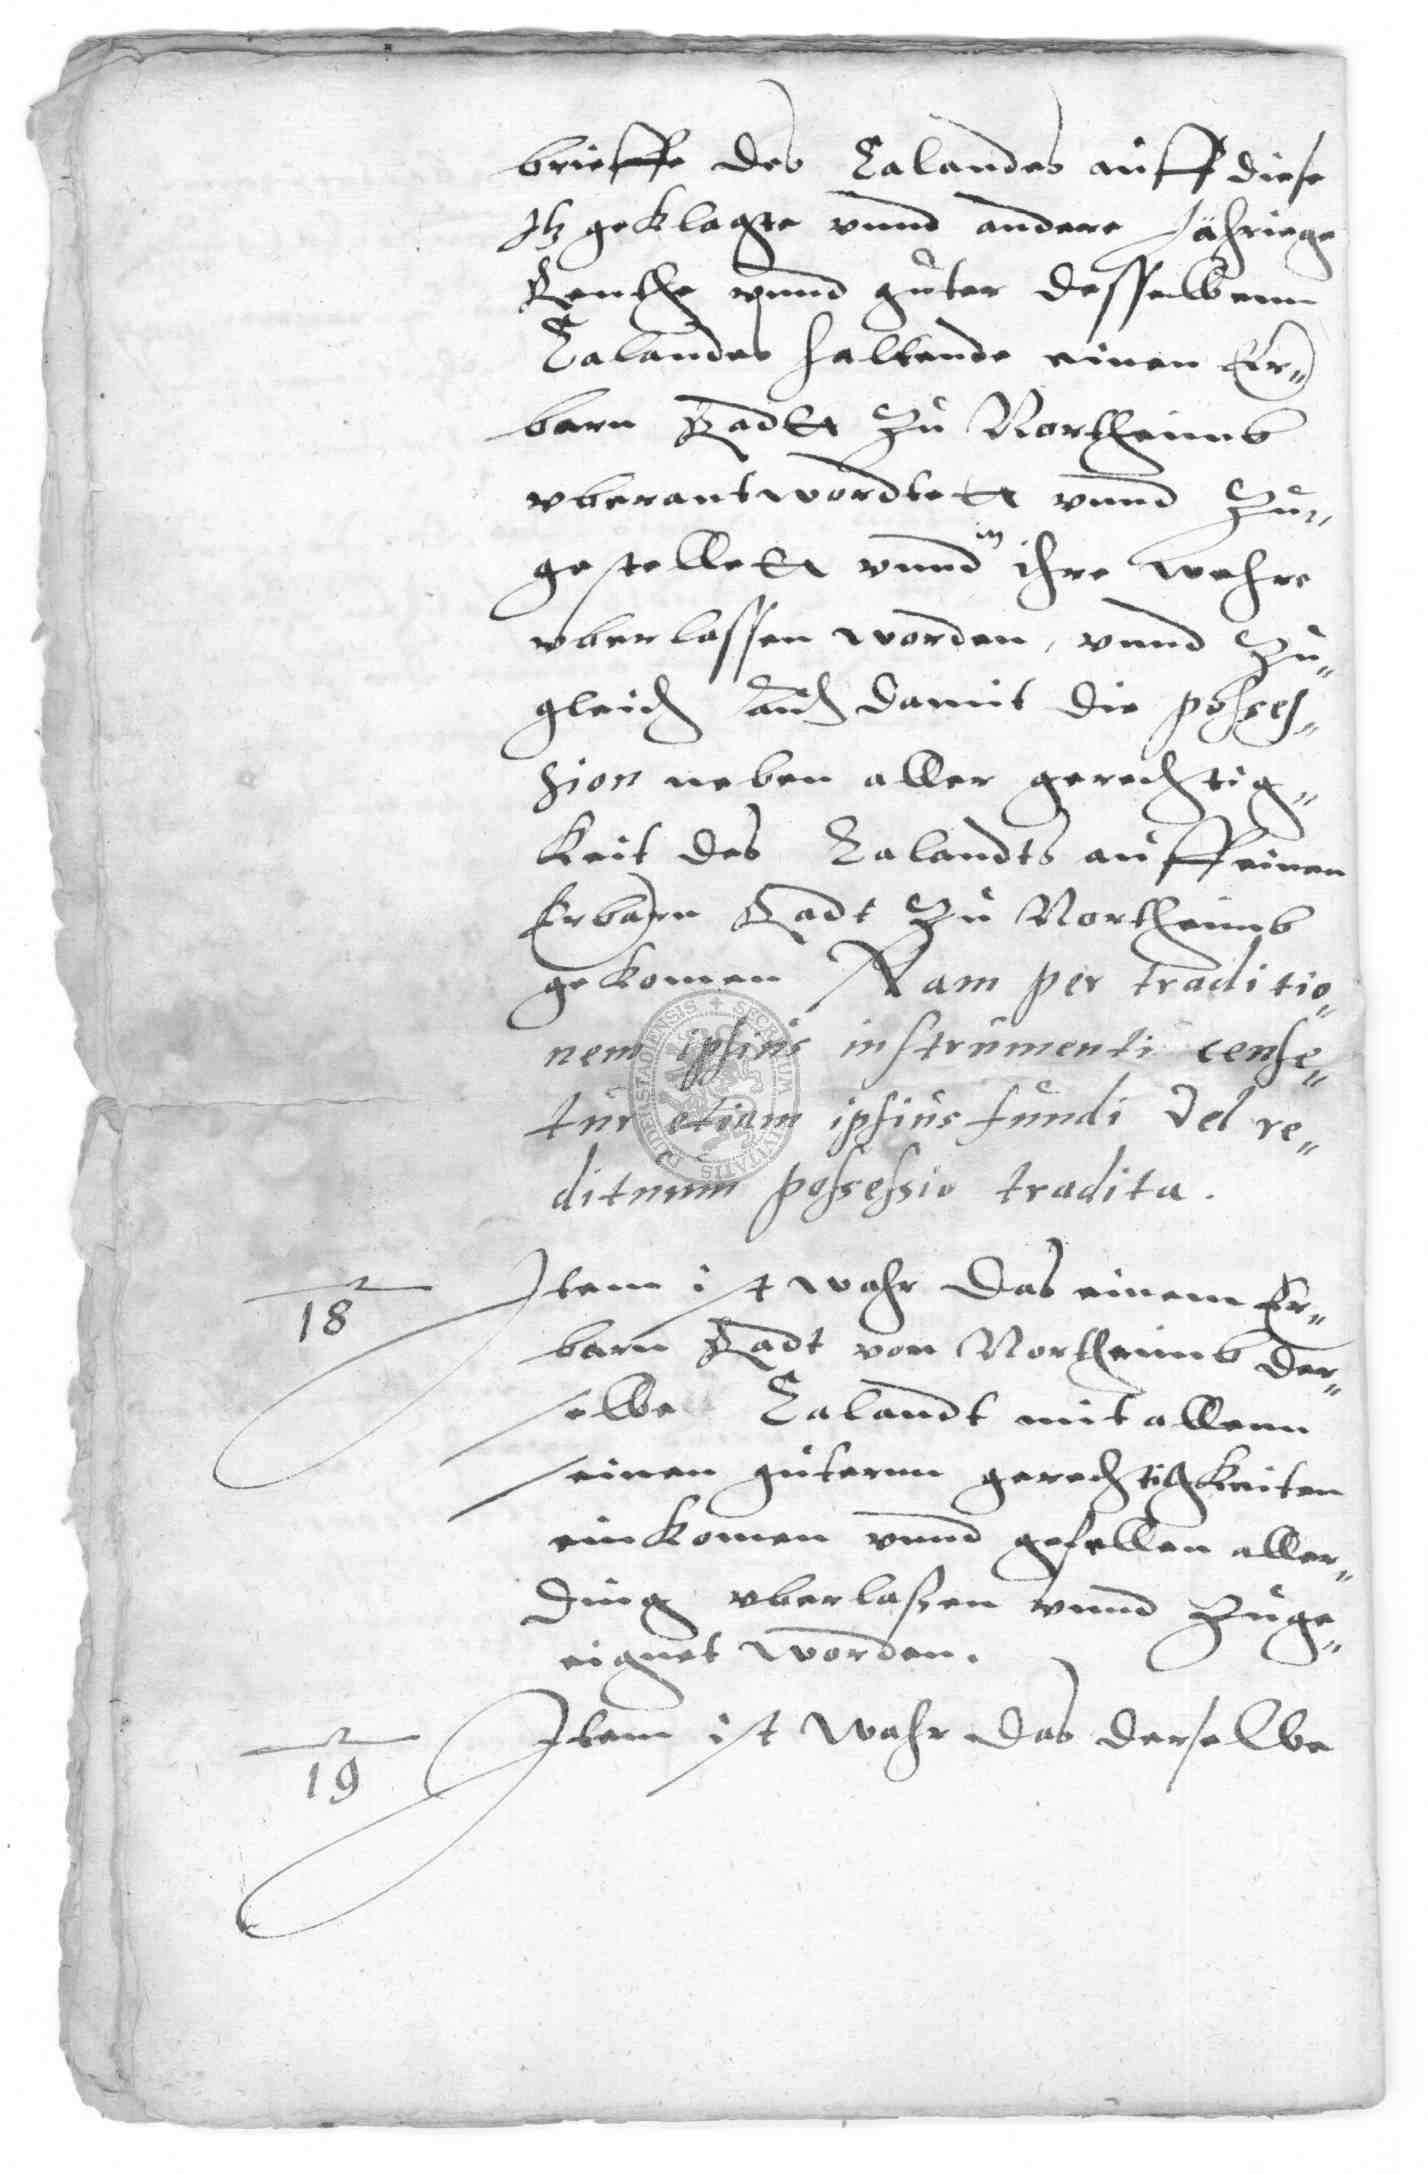 brieffe des Calandes auff diese
Itz geklagte vnnd andere Jährige
Renthe vnnd guter desselbenn
Calandes haltende einen Er„
barn Radtt zu Northeimb
vberantwordtett vnnd zu„
gestellett vnnd in ihre wehre
vberlassen worden, vnnd zu„
gleich auch damit die posses„
sion neben aller gerechtig„
keit des Calandts auff einen
Erbarn Radt zu Northeimb
gekomen Nam per traditio„
nem ipsius instrumenti cense„
tur etiam ipsius fundi vel re„
dituum possessio tradita.
18 Item ist wahr das einem Er„
barn Radt von Northeimb der„
selbe Calandt mit allenn
seinen guternn gerechtigkeiten
einkomen vnnd gefellen aller„
ding vberlaßen vnnd zuge„
eignet worden.
19 Item ist wahr das derselbe